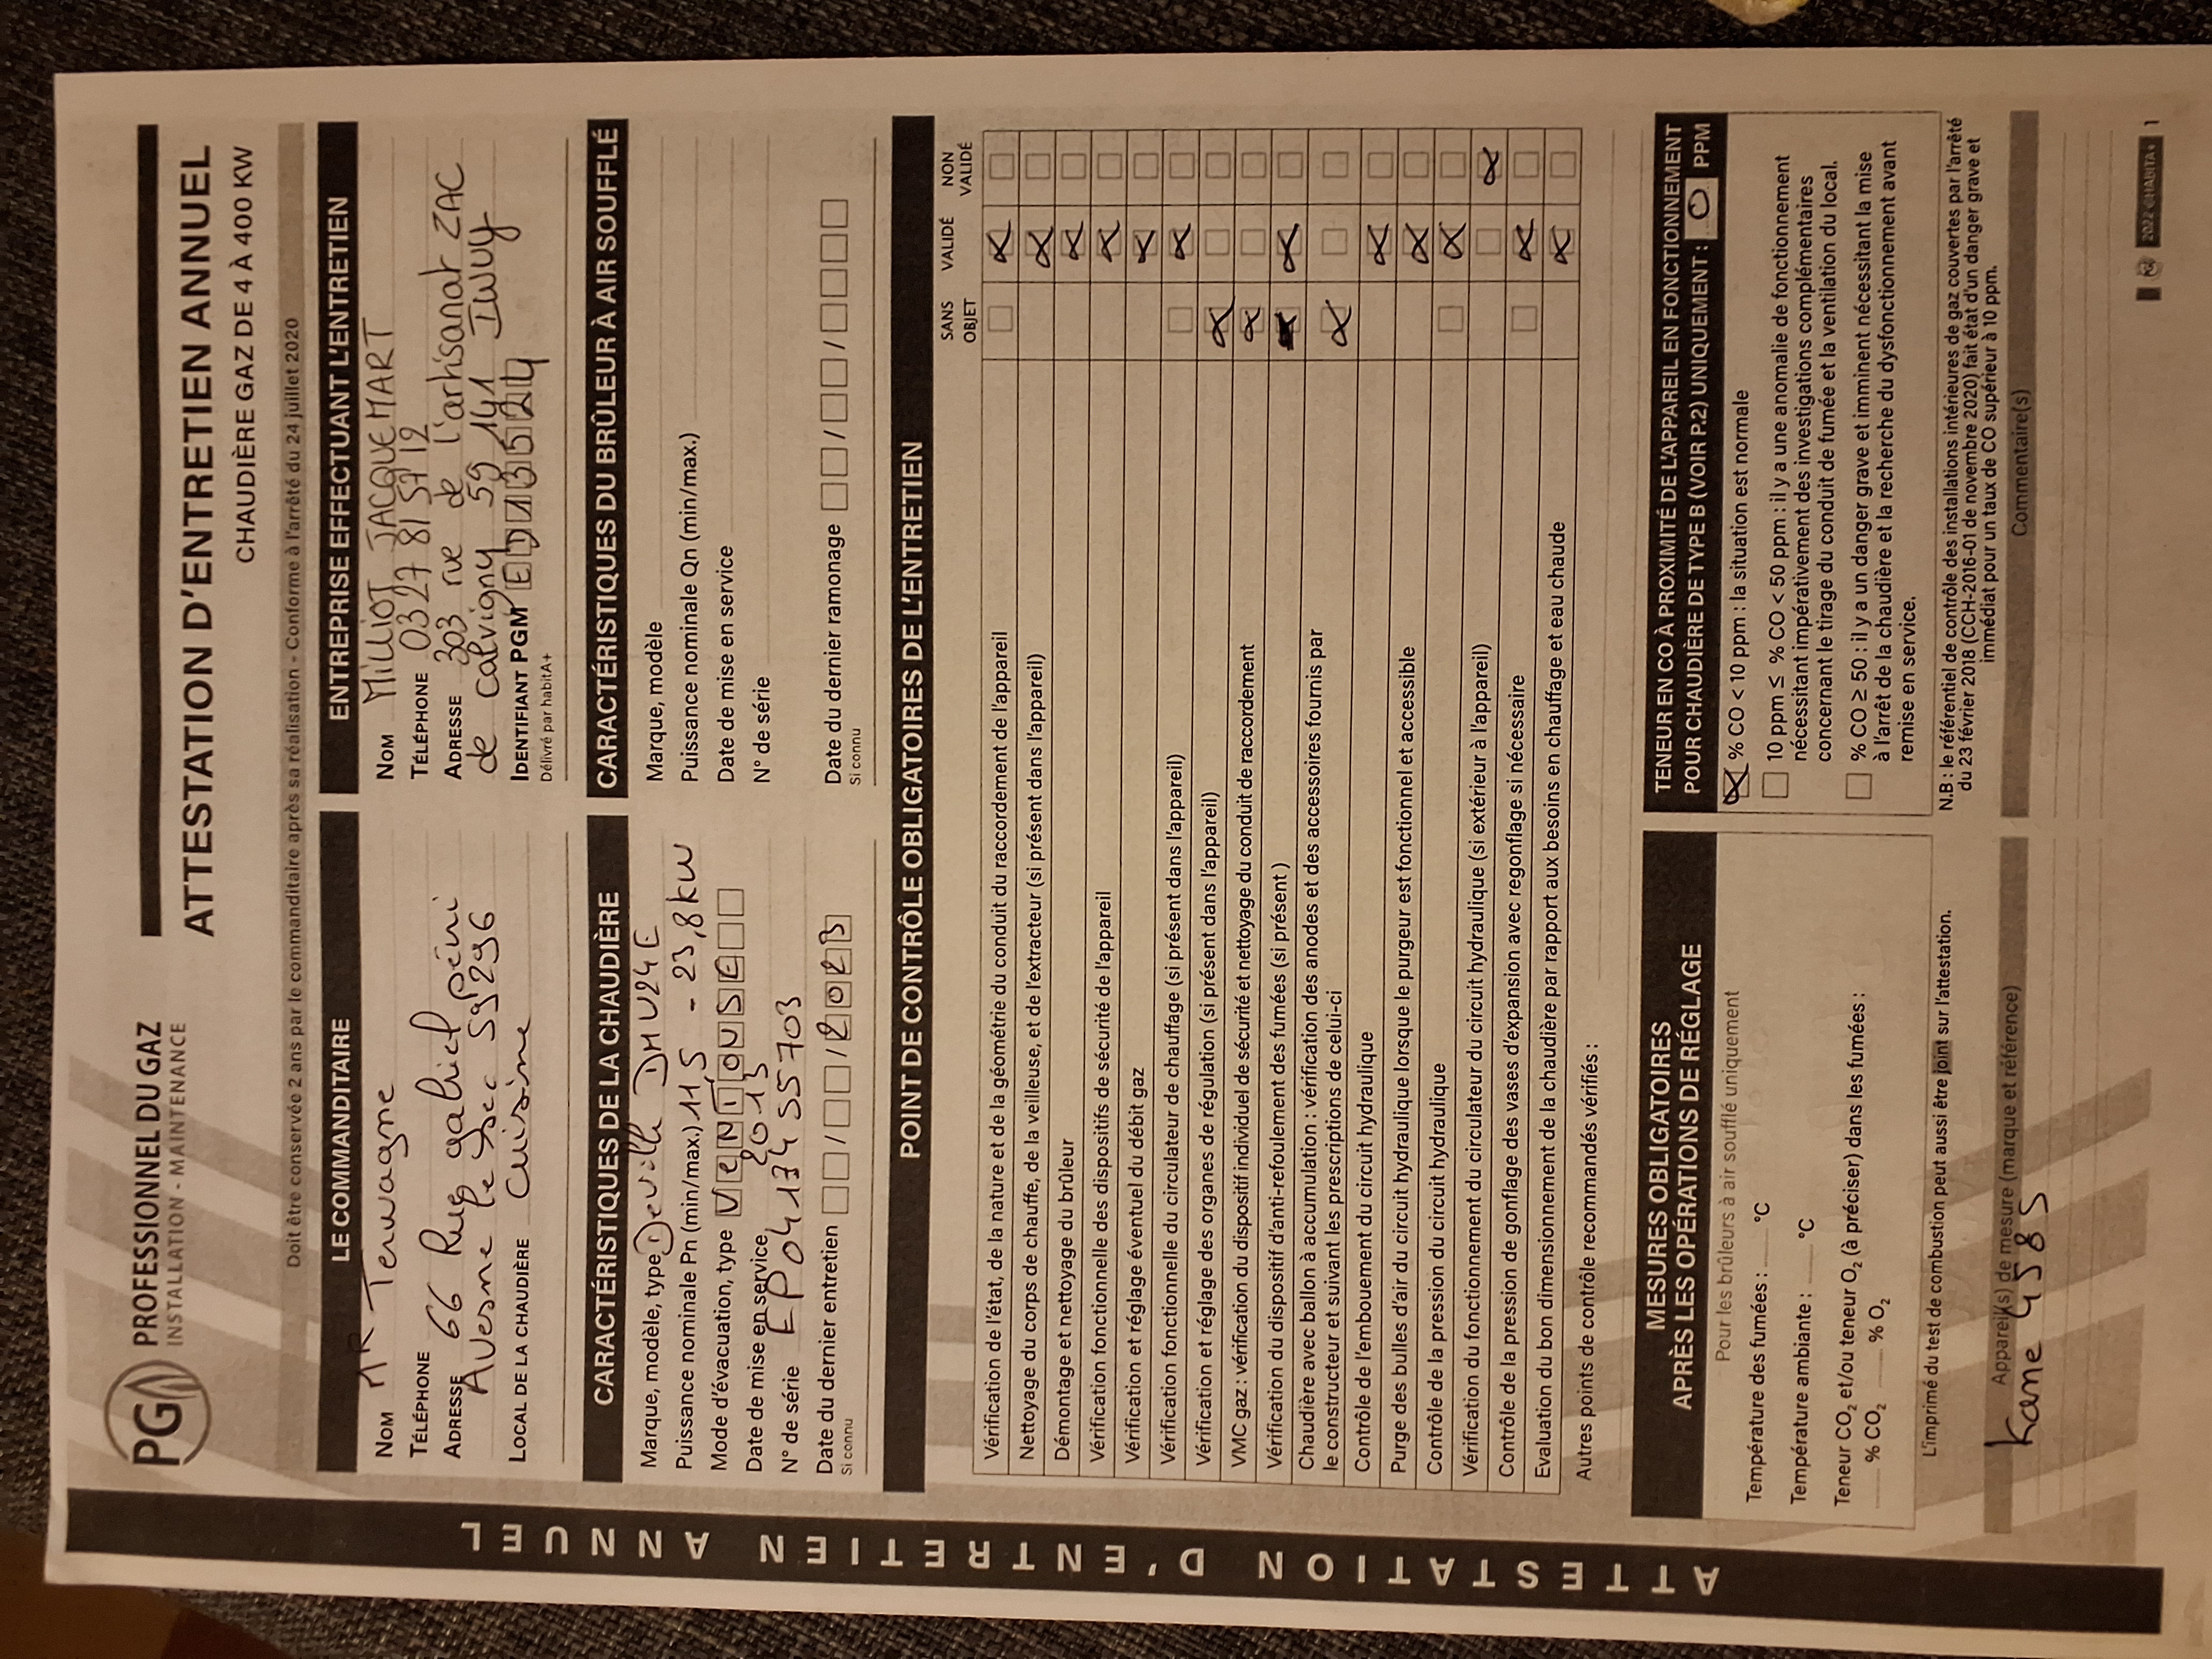 PG PROFESSIONNEL DU GAZ
INSTALLATION - MAINTENANCE
ATTESTATION D'ENTRETIEN ANNUEL
CHAUDIÈRE GAZ DE 4 À 400 KW
Doit être conservée 2 ans par le commanditaire après sa réalisation - Conforme à l'arrêté du 24 juillet 2020
LE COMMANDITAIRE
NOM MR Terwagne
TÉLÉPHONE
ADRESSE 66 Rue gabriel péri
Avesne le sec 59296
LOCAL DE LA CHAUDIÈRE Cuisine
ENTREPRISE EFFECTUANT L'ENTRETIEN
NOM MILLIOT JACQUEMART
TÉLÉPHONE 03 27 81 57 12
ADRESSE 303 rue de l'artisanat ZAC
de calvigny 59 141 Iwuy
IDENTIFIANT PGM
Délivré par habitA+
CARACTÉRISTIQUES DE LA CHAUDIÈRE
Marque, modèle, type Deville DMU24E
Puissance nominale Pn (min/max.) 11,5 - 23,8 kw
Mode d'évacuation, type VENTOUSE
Date de mise en service 2013
N° de série EP04134 55703
Date du dernier entretien / / 2023
Si connu
CARACTÉRISTIQUES DU BRÛLEUR À AIR SOUFFLÉ
Marque, modèle
Puissance nominale Qn (min/max.)
Date de mise en service
N° de série
Date du dernier ramonage / /
Si connu
POINT DE CONTRÔLE OBLIGATOIRES DE L'ENTRETIEN
SANS OBJET VALIDÉ NON VALIDÉ
Vérification de l'état, de la nature et de la géométrie du conduit du raccordement de l'appareil
Nettoyage du corps de chauffe, de la veilleuse, et de l'extracteur (si présent dans l'appareil)
Démontage et nettoyage du brûleur
Vérification fonctionnelle des dispositifs de sécurité de l'appareil
Vérification et réglage éventuel du débit gaz
Vérification fonctionnelle du circulateur de chauffage (si présent dans l'appareil)
Vérification et réglage des organes de régulation (si présent dans l'appareil)
VMC gaz : vérification du dispositif individuel de sécurité et nettoyage du conduit de raccordement
Vérification du dispositif d'anti-refoulement des fumées (si présent )
Chaudière avec ballon à accumulation : vérification des anodes et des accessoires fournis par
le constructeur et suivant les prescriptions de celui-ci
Contrôle de l'embouement du circuit hydraulique
Purge des bulles d'air du circuit hydraulique lorsque le purgeur est fonctionnel et accessible
Contrôle de la pression du circuit hydraulique
Vérification du fonctionnement du circulateur du circuit hydraulique (si extérieur à l'appareil)
Contrôle de la pression de gonflage des vases d'expansion avec regonflage si nécessaire
Evaluation du bon dimensionnement de la chaudière par rapport aux besoins en chauffage et eau chaude
Autres points de contrôle recommandés vérifiés :
MESURES OBLIGATOIRES
APRÈS LES OPÉRATIONS DE RÉGLAGE
Pour les brûleurs à air soufflé uniquement
Température des fumées : °C
Température ambiante : °C
Teneur CO2 et/ou teneur O2 (à préciser) dans les fumées :
% CO2 % O2
L'imprimé du test de combustion peut aussi être joint sur l'attestation.
Appareil(s) de mesure (marque et référence)
Kane 458S
TENEUR EN CO À PROXIMITÉ DE L'APPAREIL EN FONCTIONNEMENT
POUR CHAUDIÈRE DE TYPE B (VOIR P.2) UNIQUEMENT : 0 PPM
% CO < 10 ppm : la situation est normale
10 ppm ≤ % CO < 50 ppm : il y a une anomalie de fonctionnement
nécessitant impérativement des investigations complémentaires
concernant le tirage du conduit de fumée et la ventilation du local.
% CO ≥ 50 : il y a un danger grave et imminent nécessitant la mise
à l'arrêt de la chaudière et la recherche du dysfonctionnement avant
remise en service.
N.B : le référentiel de contrôle des installations intérieures de gaz couvertes par l'arrêté
du 23 février 2018 (CCH-2016-01 de novembre 2020) fait état d'un danger grave et
immédiat pour un taux de CO supérieur à 10 ppm.
Commentaire(s)
2022 ©HABITA+ 1
ATTESTATION D'ENTRETIEN ANNUEL